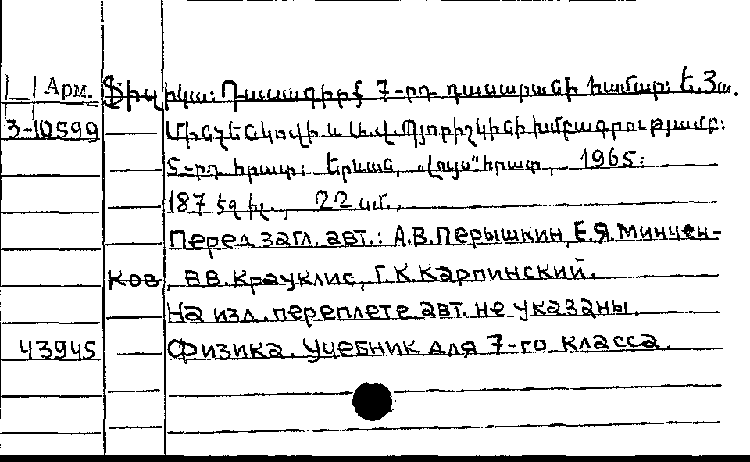 Арм. Ֆիզիկա: Դասագիրք 7-րդ դասարանի համար: Ե. Յա.
3-10599 Մինչենկովի և Ա.Վ. Պյորիշկինի խմբագրությամբ:
5-րդ հրատ: Երևան, «Լույս» հրատ, 1965:
187 էջ իլ., 22 սմ.,
Перед загл. авт.: А.В.Перышкин, Е.Я.Минчен-
ков, В.В.Крауклис, Г.К.Карпинский.
На изд. переплете авт. не указаны.
43945 Физика. Учебник для 7-го класса.